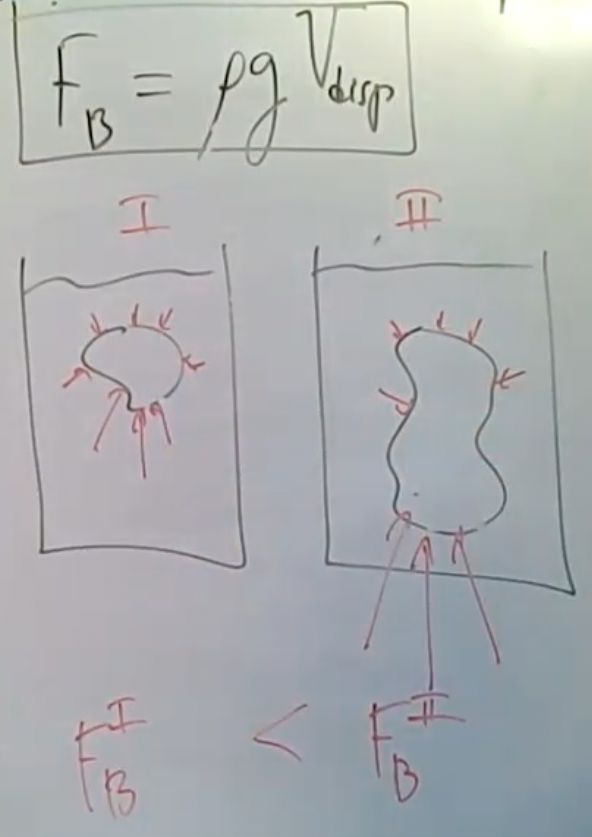 F_B = ρg V_disp
I II
F_B^I < F_B^II